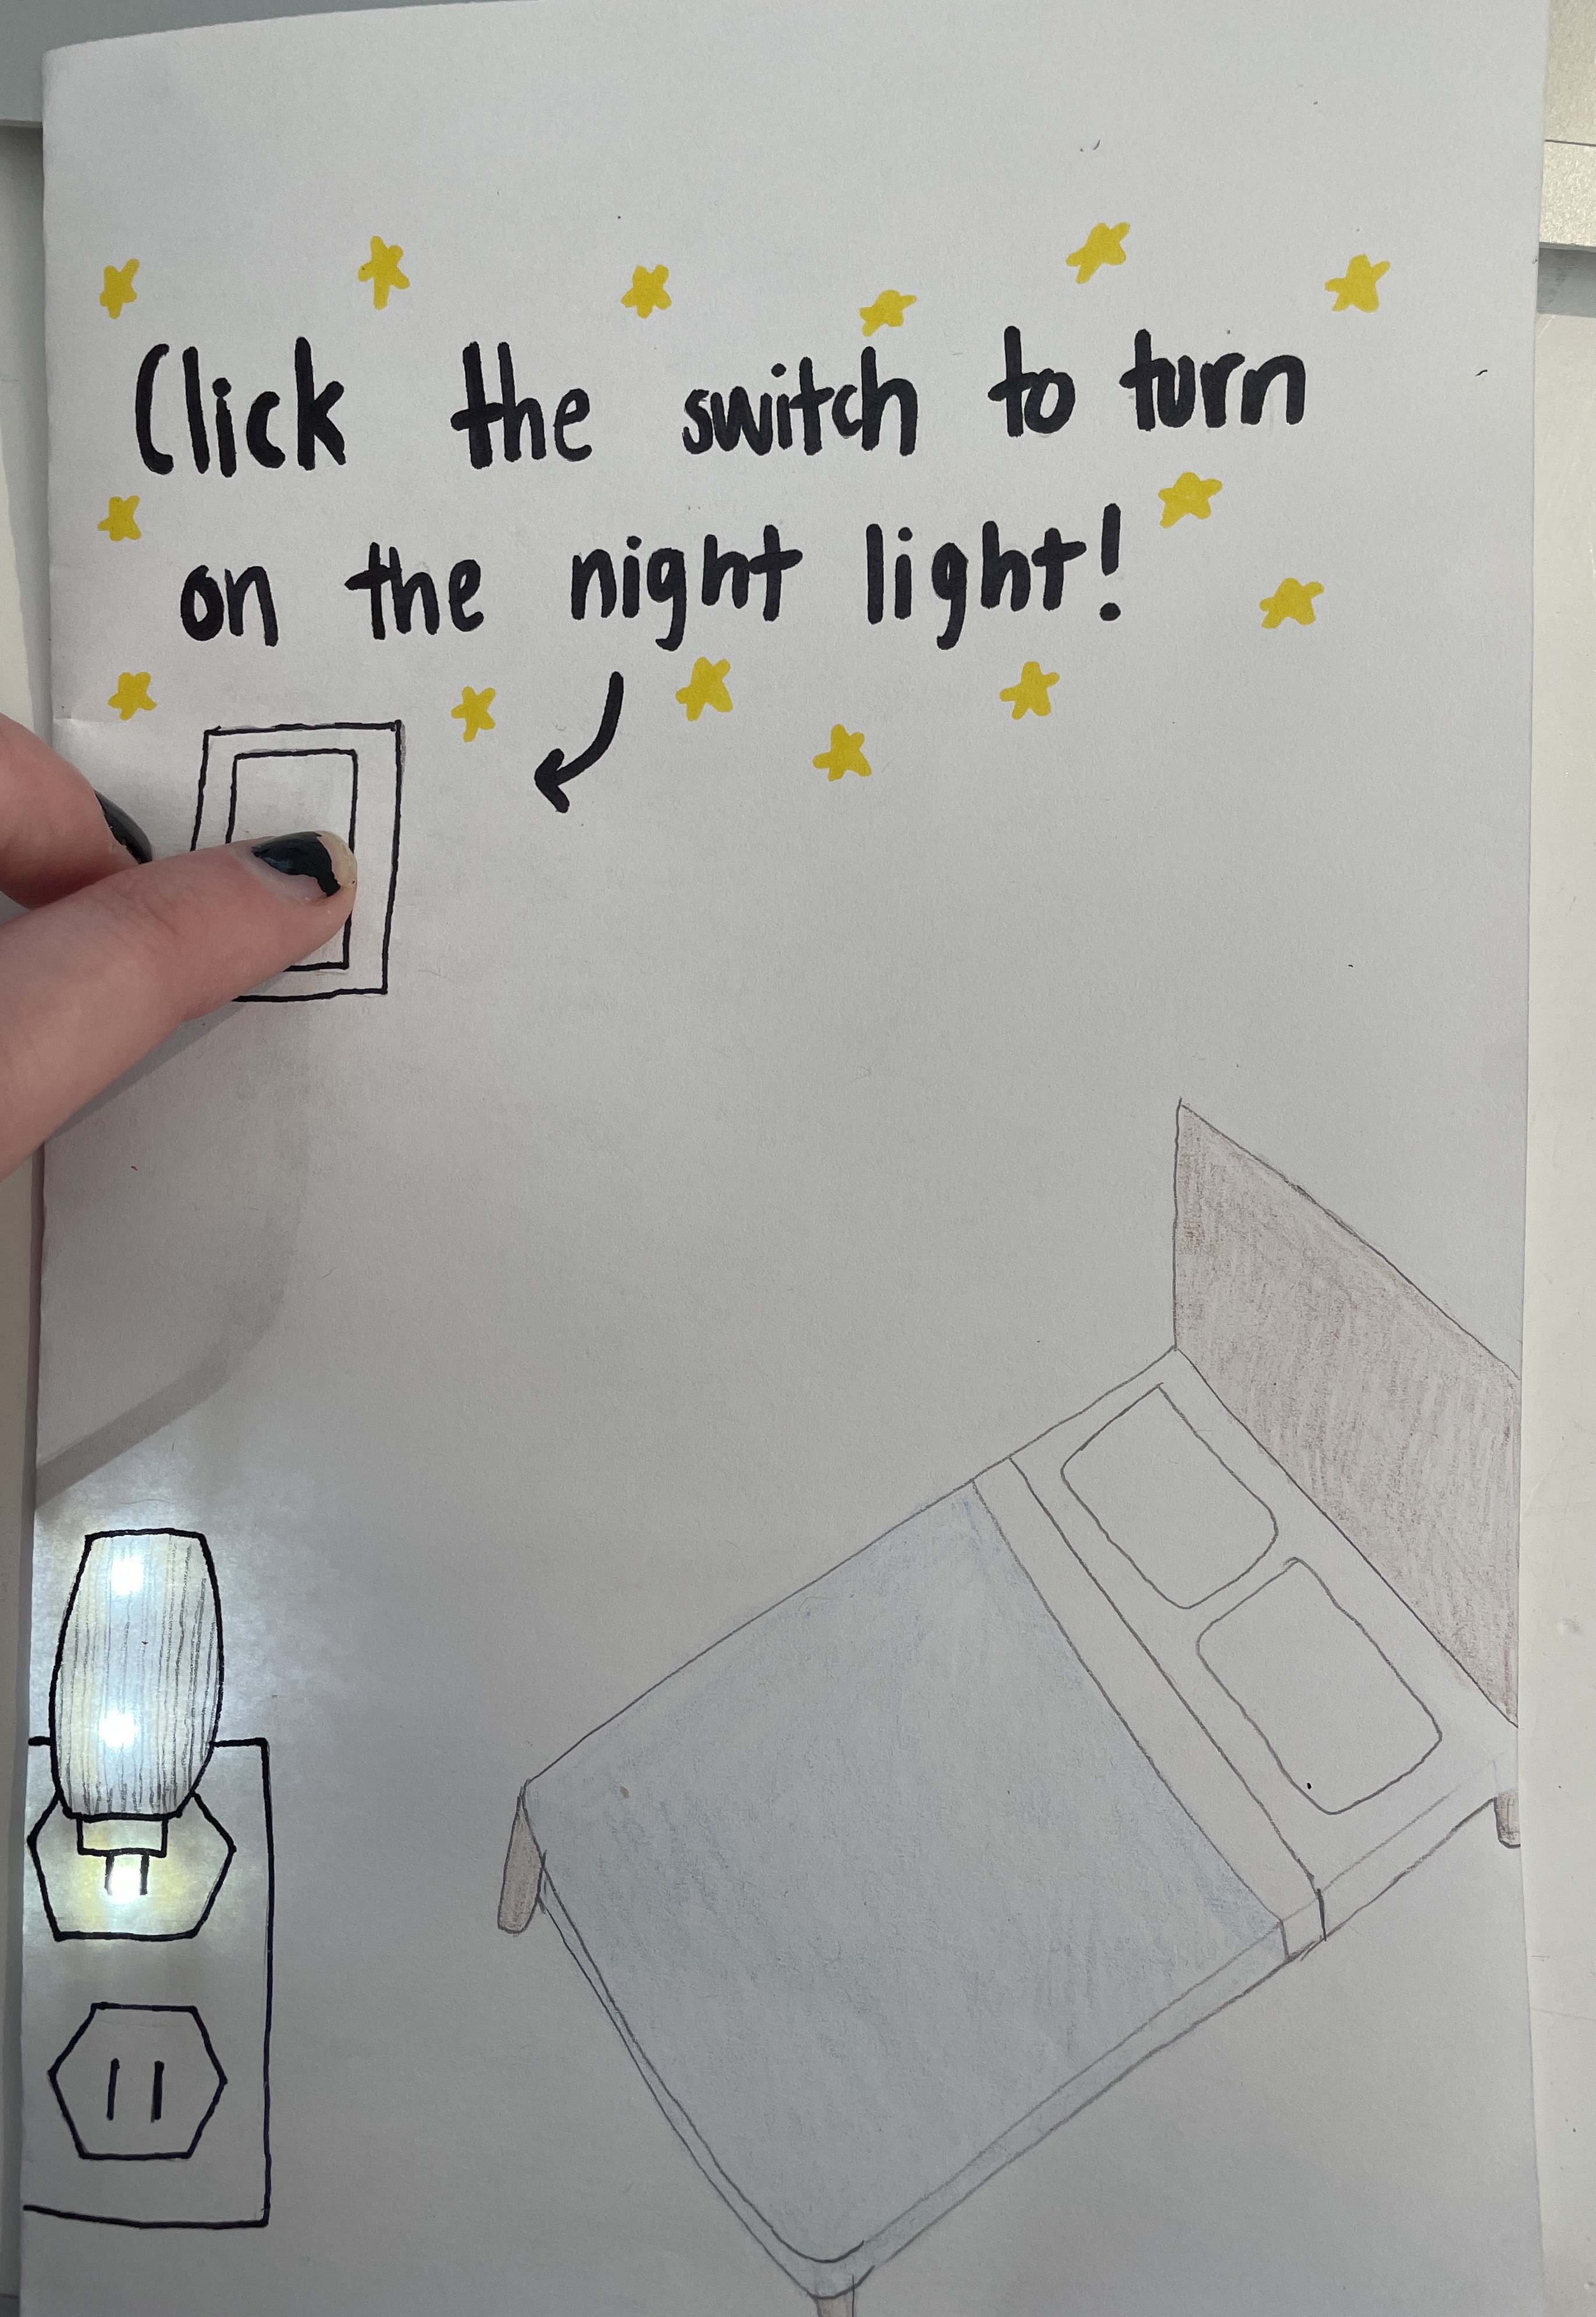 Click the switch to turn
on the night light!